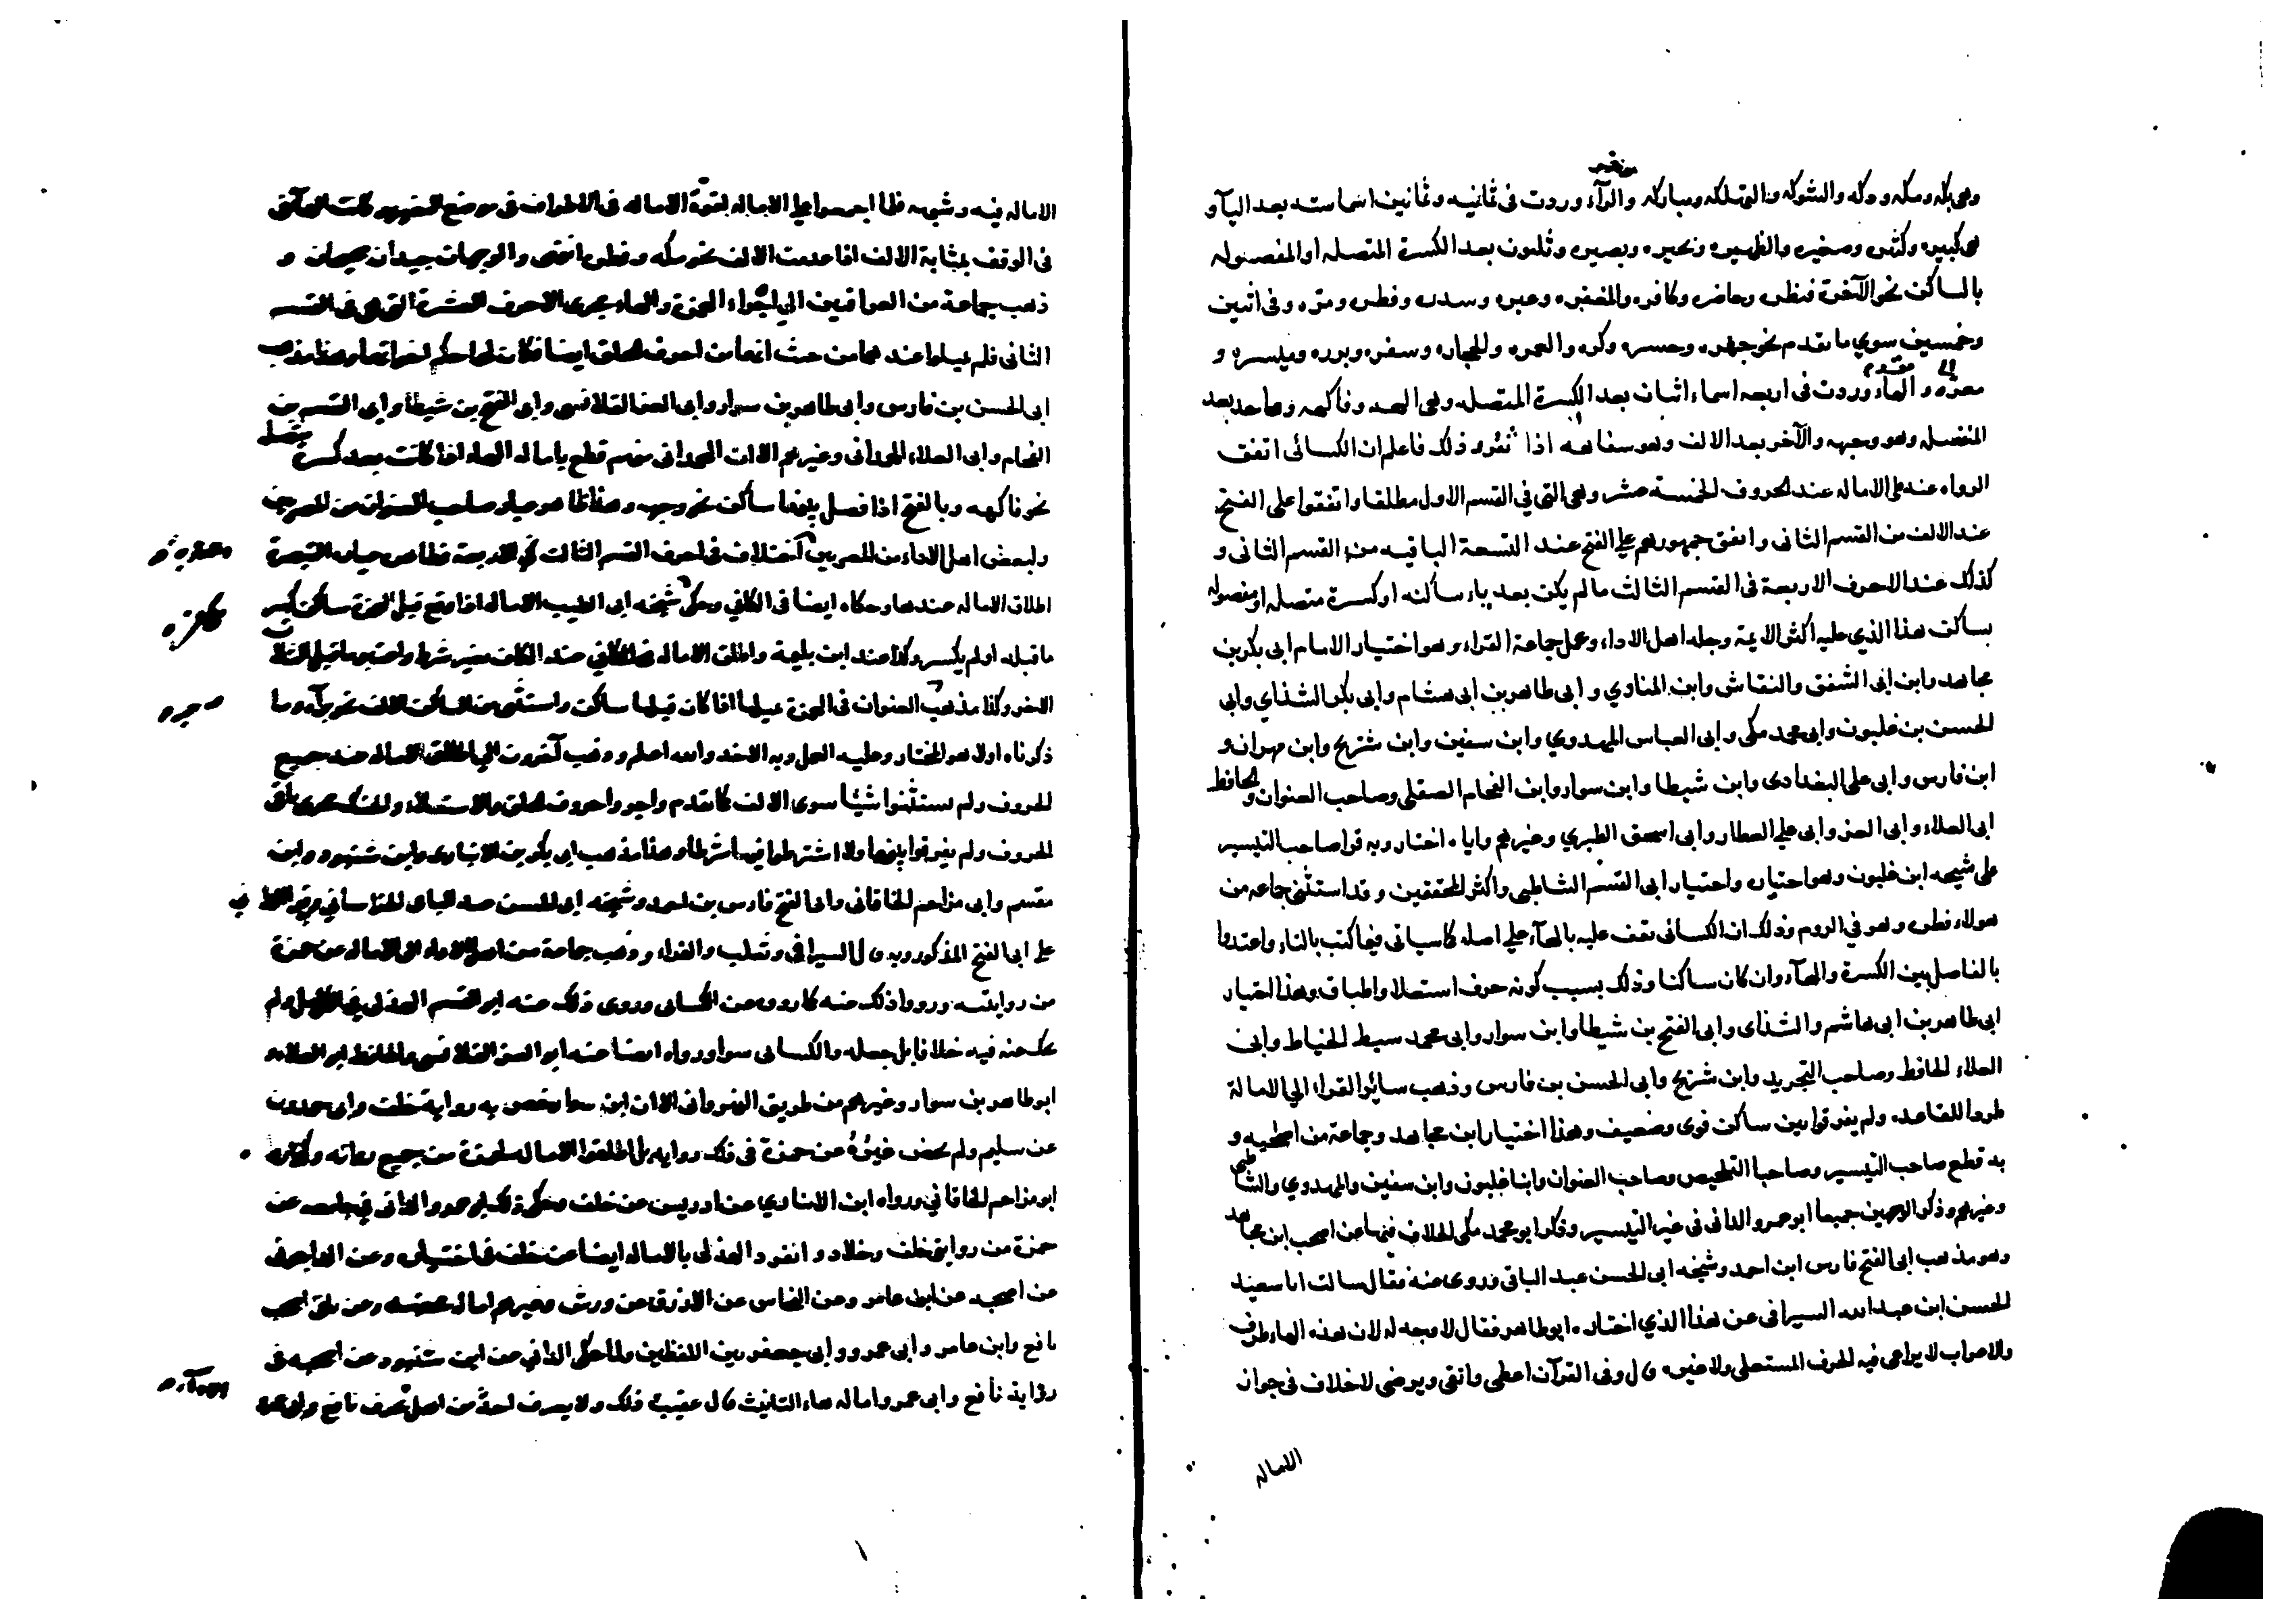 وهي بكه ومكه ودكه والشوكه والتهلكه ومباركه والرآء وردت في ثمانيه وثمانين اسما سته بعد اليآ و
هي كبيره وكثيره وصغيره والظهيره وبحيره وبصيره وثلثون بعد الكسرة المتصله او المفصوله
بالساكن نحو الآخرة فنظره وحاضره وكافره والمغفره وعبره وسدره وفطره ومره وفي اثنين
وخمسين سوي ما تقدم نحو جهره وحسره وكره والعمره والحجاره وسفره وبرره وميسره و
معره والهاء وردت في اربعه اسماء اثنان بعد الكسرة المتصله وهي الهه وفاكهه وواحد بعد
المنفصله وهو وجهه والآخر بعد الالف وهو سفاهه اذا تقرر ذلك فاعلم ان الكسائي اتفق
الرواه عنه على الاماله عند الحروف الخمسة عشر وهي التي في القسم الاول مطلقا واتفقوا على الفتح
عند الالف من القسم الثاني واتفق جمهورهم علي الفتح عند التسعة الباقيه من القسم الثاني و
كذلك عند الاحرف الاربعة في القسم الثالث ما لم يكن بعد ياء ساكنه او كسرة متصله او مفصوله
بساكن هذا الذي عليه اكثر الايمة وجله اهل الاداء وعمل جماعة القراء وهو اختيار الامام ابي بكر بن
مجاهد وابن ابي الشفق والنقاش وابن المنادي وابي طاهر بن ابي هشام وابي بكر الشذاي وابي
الحسن بن غلبون وابي محمد مكي وابي العباس المهدوي وابن سفين وابن شريح وابن مهران و
ابن فارس وابي علي البغدادي وابن شيطا وابن سوار وابن الفحام الصقلي وصاحب العنوان والحافظ
ابي العلاء وابي العز وابي علي العطار وابي اسحق الطبري وغيرهم واياه اختار وبه قرا صاحب التيسير
على شيخه ابن غلبون وهو اختياره واختيار ابي القسم الشاطبي واكثر المحققين وقد استثنى جماعه من
هولاء فطره وهو في الروم وذلك ان الكسائي يقف عليه بالهآء علي اصله كما سياتي فيما كتب بالتاء واعتدوا
بالفاصل بين الكسرة والهآء وان كان ساكنا وذلك بسبب كونه حرف استعلا واطباق وهذا اختيار
ابي طاهر بن ابي هاشم والشذاي وابي الفتح بن شيطا وابن سوار وابي محمد سبط الخياط وابي
العلاء الحافظ وصاحب التجريد وابن شريح وابي الحسن بن فارس وذهب سائر القراء الي الامالة
طردا للقاعده ولم يفرقوا بين ساكن قوي وضعيف وهذا اختيار ابن مجاهد وجماعة من اصحابه و
به قطع صاحب التيسير وصاحبا التلخيص وصاحب العنوان وابنا غلبون وابن سفين والمهدوي والشاطبي
وغيرهم وذكر الوجهين جميعا ابو عمرو الداني في غير التيسير وذكر ابو محمد مكي الخلاف فيها عن اصحب ابن مجاهد
وهو مذهب ابي الفتح فارس ابن احمد وشيخه ابي الحسن عبد الباقي وروى عنه فقال سالت ابا سعيد
الحسن ابن عبد الله السيرافي عن هذا الذي اختاره ابو طاهر فقال لا وجه له لان هذه الهاء طرف
والاعراب لا يراعى فيه الحرف المستعلى ولا غيره قال وفي القرآن اعطى واتقى ويرضى لا خلاف في جواز
الاماله
الاماله فيه وشبهه فلما اجمعوا علي الاماله لقوة الاماله في الاطراف في موضع التغيير كانت الهآء
في الوقف بمثابة الالف اذا عدمت الالف نحو مكه وفطره انتهى والوجهان جيدان صحيحان و
ذهب جماعة من العراقيين الي اجراء الهمزة والهاء مجرى الاحرف العشرة التي هي في القسم
الثاني فلم يميلوا عندهما من حيث انهما من احرف الحلق ايضا فكان لهما حكم اخواتهما وهذا مذهب
ابي الحسن بن فارس وابي طاهر بن سوار وابي العز القلانسي وابي الفتح بن شيطا وابي القسم بن
الفحام وابي العلاء الهمداني وغيرهم الا ان الهمداني منهم قطع باماله الهاء اذا كانت بعد كسرة متصله
نحو فاكهه وبالفتح اذا فصل بينهما ساكن نحو وجهه وهذا ظاهر عباره صاحب العنوان من المصريين
ولبعض اهل الاداء من المصريين اختلاف في احرف القسم الثالث الاربعة فظاهر عباره التبصرة
اطلاق الاماله عندها وحكاه ايضا في الكافي وحكى شيخه ابي الطيب الاماله اذا وقع قبل الهمزة ساكن كسر
ما قبله او لم يكسر وكذا عند ابن بليمة واطلق الاماله عند الكاف بغير شرط واعتبر ما قبل الثلاثه
الاخر وكذا مذهب العنوان في الهمزة يميلها اذا كان قبلها ساكن واستثنى من الساكن الالف نحو برآءه وما
ذكرناه اولا هو المختار وعليه العمل وبه الاخذ والله اعلم وذهب آخرون الي اطلاق الاماله عند جميع
الحروف ولم يستثنوا شيئا سوى الالف كما تقدم واجروا حروف الحلق والاستعلاء والحنك مجرى باقي
الحروف ولم يفرقوا بينها ولا اشترطوا فيها شرطا وهذا مذهب ابي بكر بن الانباري وابن شنبوذ وابن
مقسم وابي مزاحم الخاقاني وابي الفتح فارس بن احمد وشيخه ابي الحسن عبد الباقي الخراساني وبه قرا الداني
علي ابي الفتح المذكور وبه قال السيرافي وثعلب والفراء وذهب جماعة من اهل الاداء الى الاماله عن حمزة
من روايتيه ورووا ذلك عنه كما روى عن الكسائي وروى ذلك عنه ابو القسم الهذلي في الكامل ولم
يحك عنه فيه خلافا بل جعله والكسائي سواء ورواه ايضا عنه ابو العز القلانسي والحافظ ابو العلاء و
ابو طاهر بن سوار وغيرهم من طريق النهرواني الا ان ابن سوار خص به رواية خلف وابي حمدون
عن سليم ولم يخص غيره عن حمزة في ذلك روايه بل اطلقوا الاماله لحمزة من جميع رواته
ابو مزاحم الخاقاني ورواه ابن الانباري عن ادريس عن خلف وحكى ذلك ابو عمرو الداني في جامعه عن
حمزة من روايتي خلف وخلاد وانفرد الهذلي بالاماله ايضا عن خلف في اختياره وعن الداجوني
عن اصحبه عن ابن عامر وعن النحاس عن الازرق عن ورش وغيرهم اماله محضه وعن باقي اصحب
نافع وابن عامر وابي عمرو وابي جعفر بين اللفظين ولما حكى الداني عن ابن شنبوذ عن اصحبه في
رواية نافع وابي عمرو اماله هاء التانيث قال عقيب ذلك ولا يعرف احد من اهل حرف نافع وابي عمرو